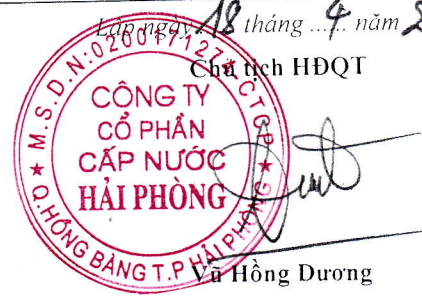 Lập ngày 18 tháng ...4... năm 2
Chủ tịch HĐQT
M.S.D.N:0200171274-C.T.C.P
CÔNG TY
CỔ PHẦN
CẤP NƯỚC
HẢI PHÒNG
Q.HỒNG BÀNG T.P HẢI PHÒNG
Vũ Hồng Dương